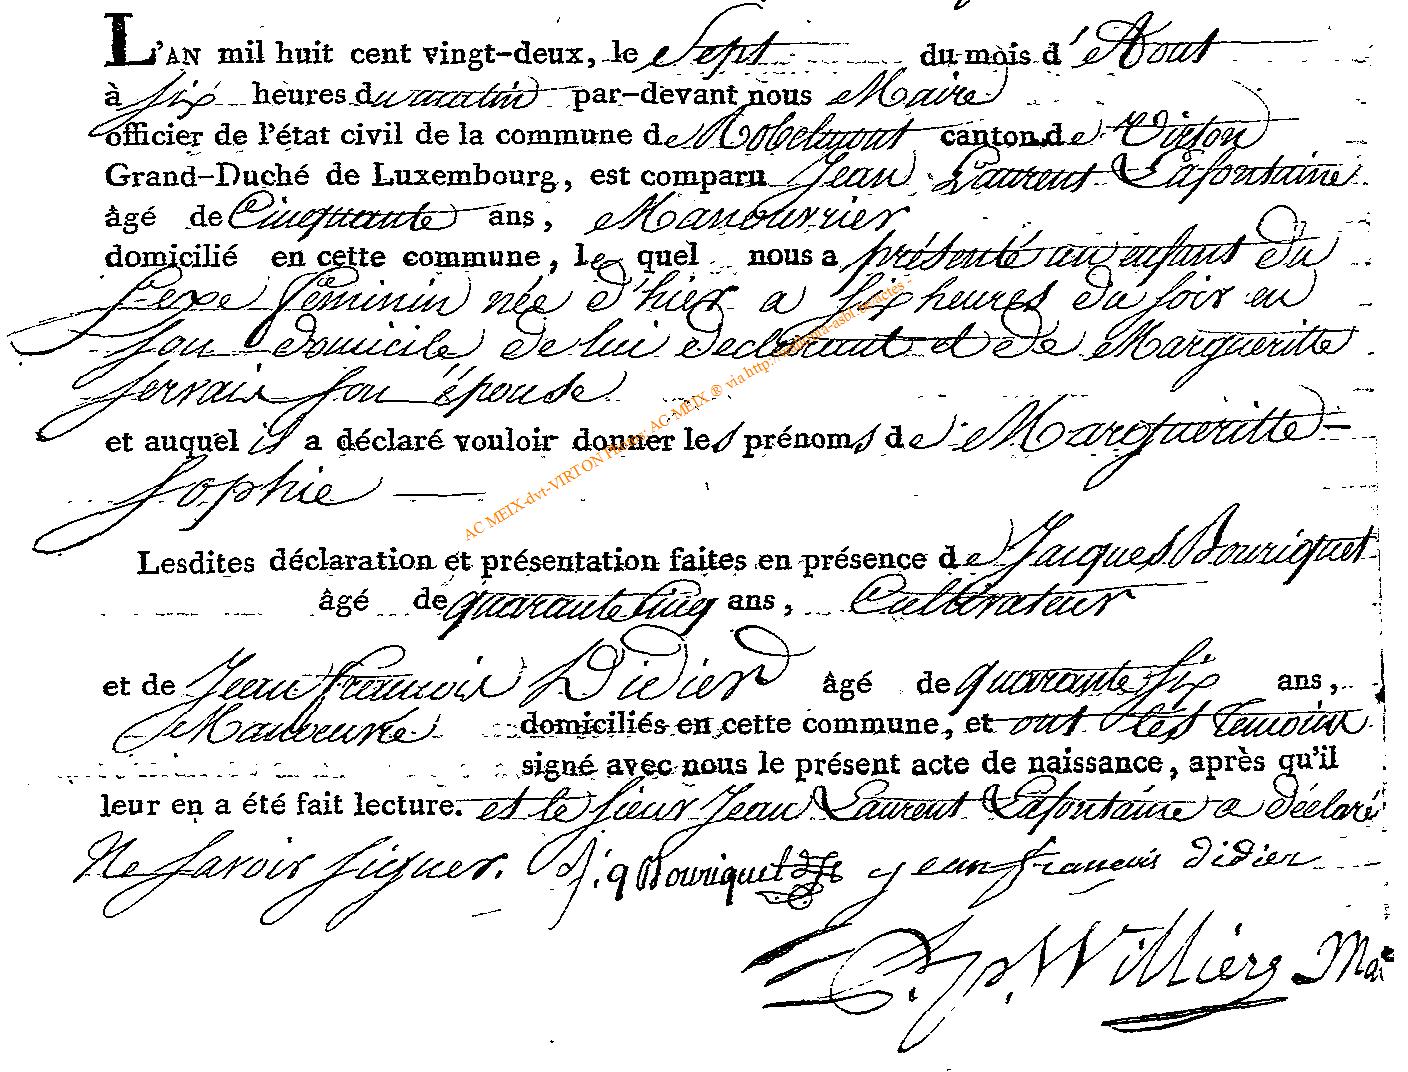 L'AN mil huit cent vingt-deux, le Sept du mois d'Aout
à six heures du matin par-devant nous Maire
officier de l'état civil de la commune de Robelmont canton de Virton
Grand-Duché de Luxembourg, est comparu Jean Laurent Lafontaine
âgé de Cinquante ans, Manouvrier
domicilié en cette commune, le quel nous a présenté un enfant du
sexe féminin née d'hier a six heures du soir en
son domicile de lui declarant et de Margueritte
servais son épouse
et auquel il a déclaré vouloir donner les prénoms de Margueritte
sophie
Lesdites déclaration et présentation faites en présence de Jacques Bouriquet
âgé de quarante cinq ans, Cultivateur
et de Jean françois Didier âgé de quarante six ans,
domiciliés en cette commune, et ont les temoins
signé avec nous le présent acte de naissance, après qu'il
leur en a été fait lecture. et le sieur Jean Laurent Lafontaine a déclaré
Ne savoir signer. j.q Bouriquet jean françois didier
p. Williers Mai
AC MEIX-dvt-VIRTON AC-MEIX ® via http: